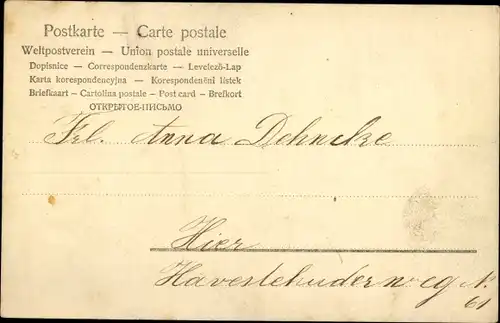 Postkarte — Carte postale
Weltpostverein — Union postale universelle
Dopisnice — Correspondenzkarte — Levelező-Lap
Karta korespondencyjna — Korespondenčni listek
Briefkaart — Cartolina postale — Post card — Brefkort
ОТКРЫТОЕ-ПИСЬМО
Frl. Anna Dehncke
Hier
Havestehuderweg N.
61